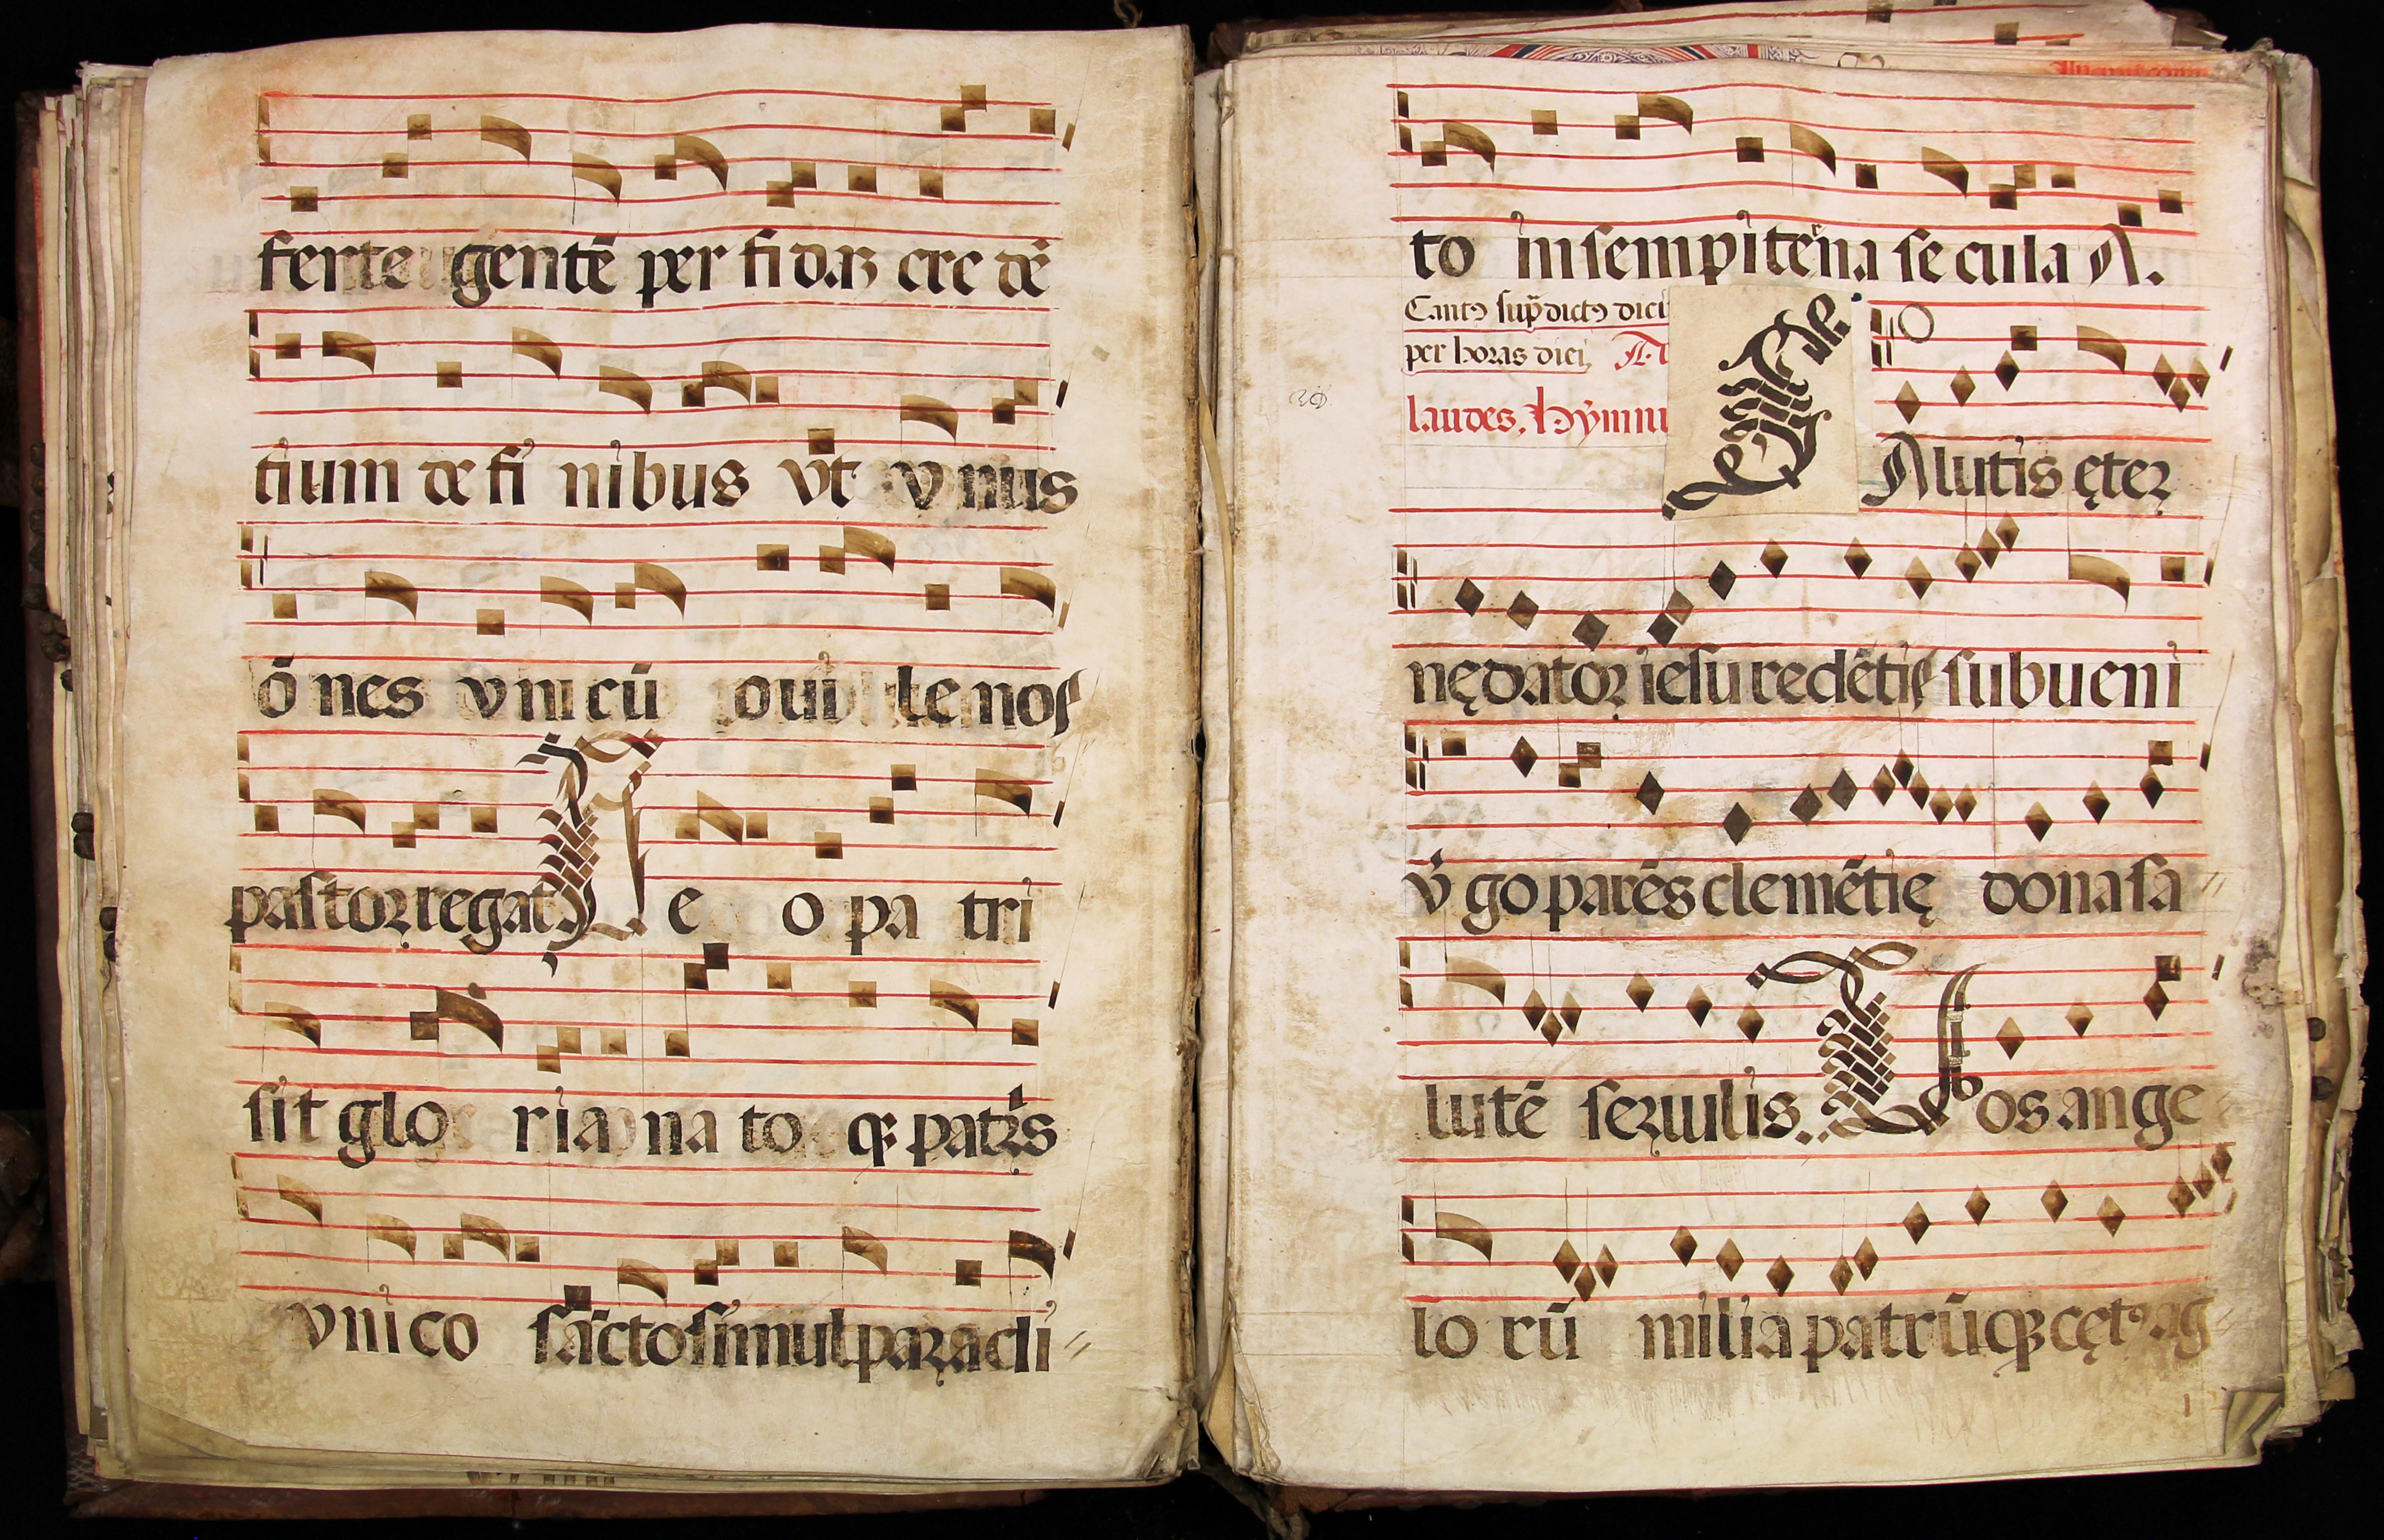 ferte gentē per fi daʒ cre dē
tium de fi nibus vt v nus
ō nes vni cū oui le nos
pastoꝛ regat De o pa tri
sit glo ria na to qꝫ patrs
vni co sācto simul paꝛacli
to in sempiteʼna se cula A.
Cantꝰ sup̄dictꝰ dici
per horas diei, A.
laudes. hymnu
SAlutis ęteꝛ
nę datoꝛ iesu redētis subueni
vʼgo parēs clemētię dona sa
lutē seꝛuulis. Vos ange
lo rū milia patrū qꝫ cętꝰ ag